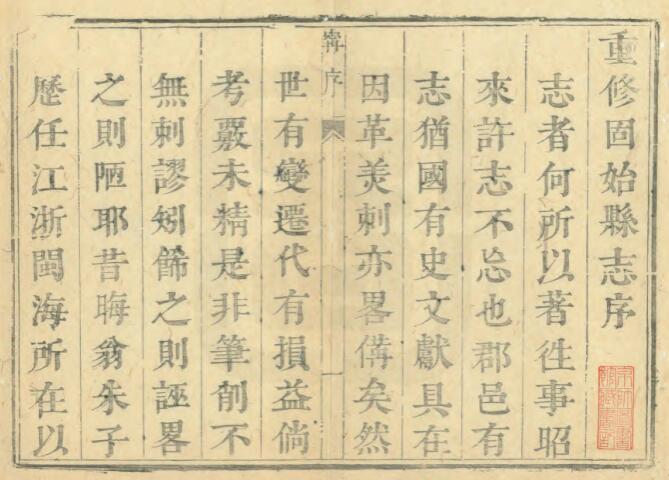 重修固始縣志序
志者何所以著徃事昭
來許志不忘也郡邑有
志猶國有史文獻具在
因革美刺亦畧備矣然
序
世有變遷代有損益倘
考覈未精是非筆削不
無刺謬矧餙之則誣畧
之則陋耶昔晦翁朱子
歷任江浙閩海所在以